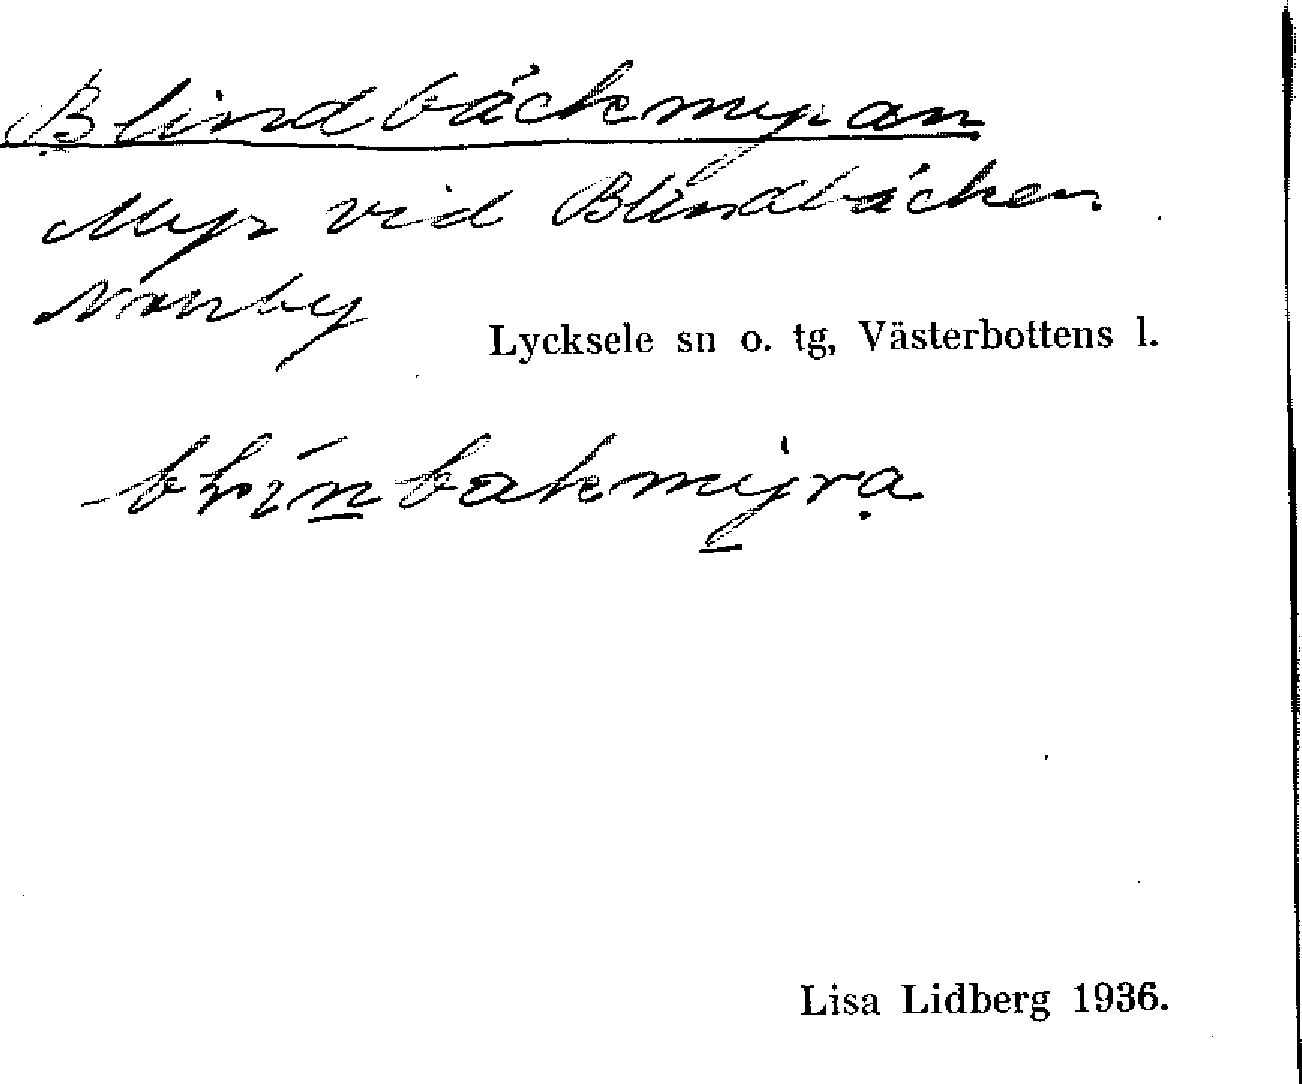 Blindbäckmyran
Myr vid Blindbäcken
Norrby
Lycksele sn o. tg, Västerbottens l.
Lisa Lidberg 1936.